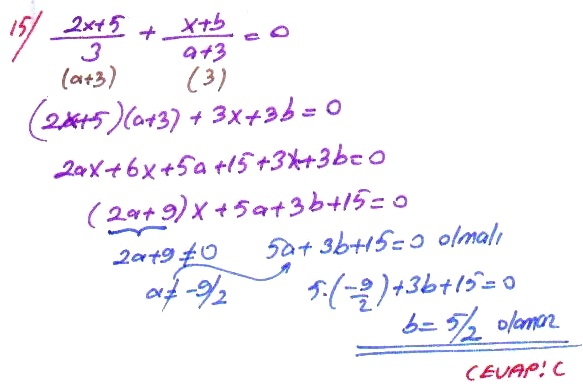 15/ (2x+5)/3 + (x+b)/(a+3) = 0
(a+3) (3)
(2x+5)(a+3) + 3x+3b = 0
2ax+6x+5a+15+3x+3b=0
(2a+9)x+5a+3b+15=0
2a+9≠0 5a+3b+15=0 olmalı
a≠-9/2 5.(-9/2)+3b+15=0
b=5/2 olamaz
CEVAP: C